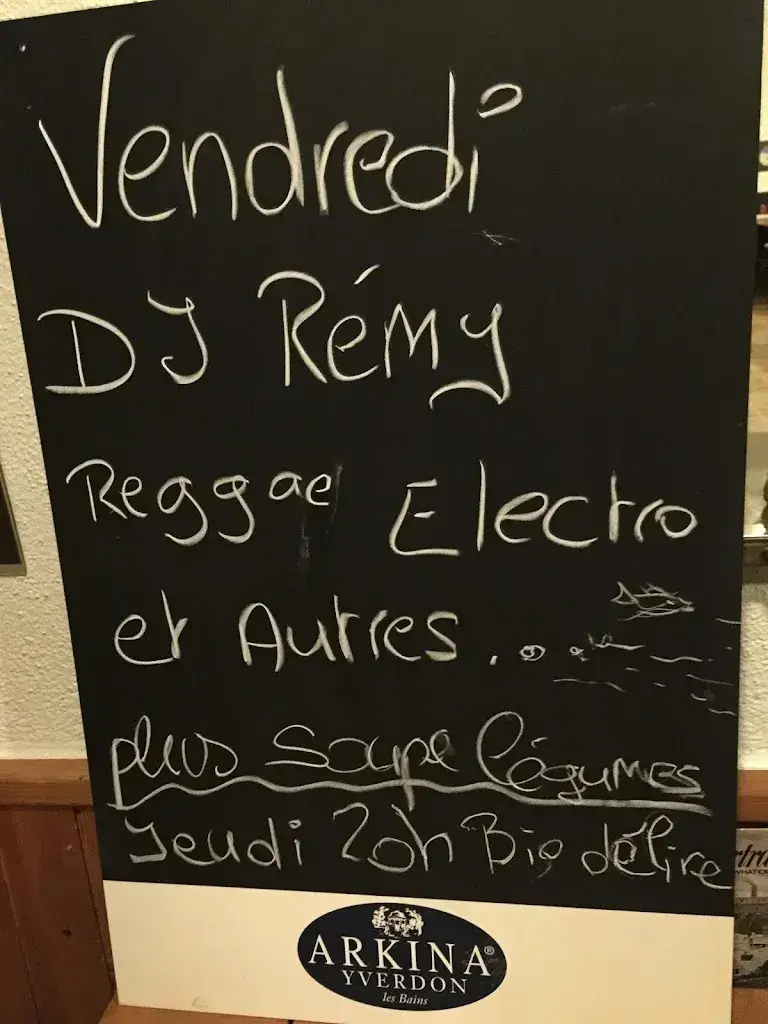 Vendredi
DJ Rémy
Reggae Electro
et Autres...
plus Soupe légumes
Jeudi 20h Bio délire
ARKINA®
YVERDON
les Bains